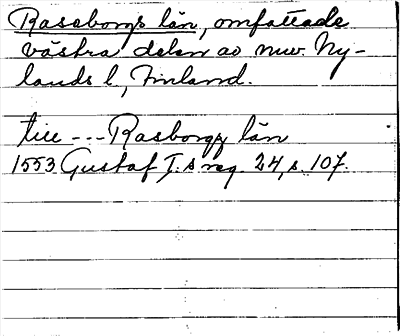 Raseborgs län, omfattade
västra delen av nuv. Ny-
lands l, Finland.
till --- Rasborgz län
1553 Gustaf I.s reg. 24, s. 107.